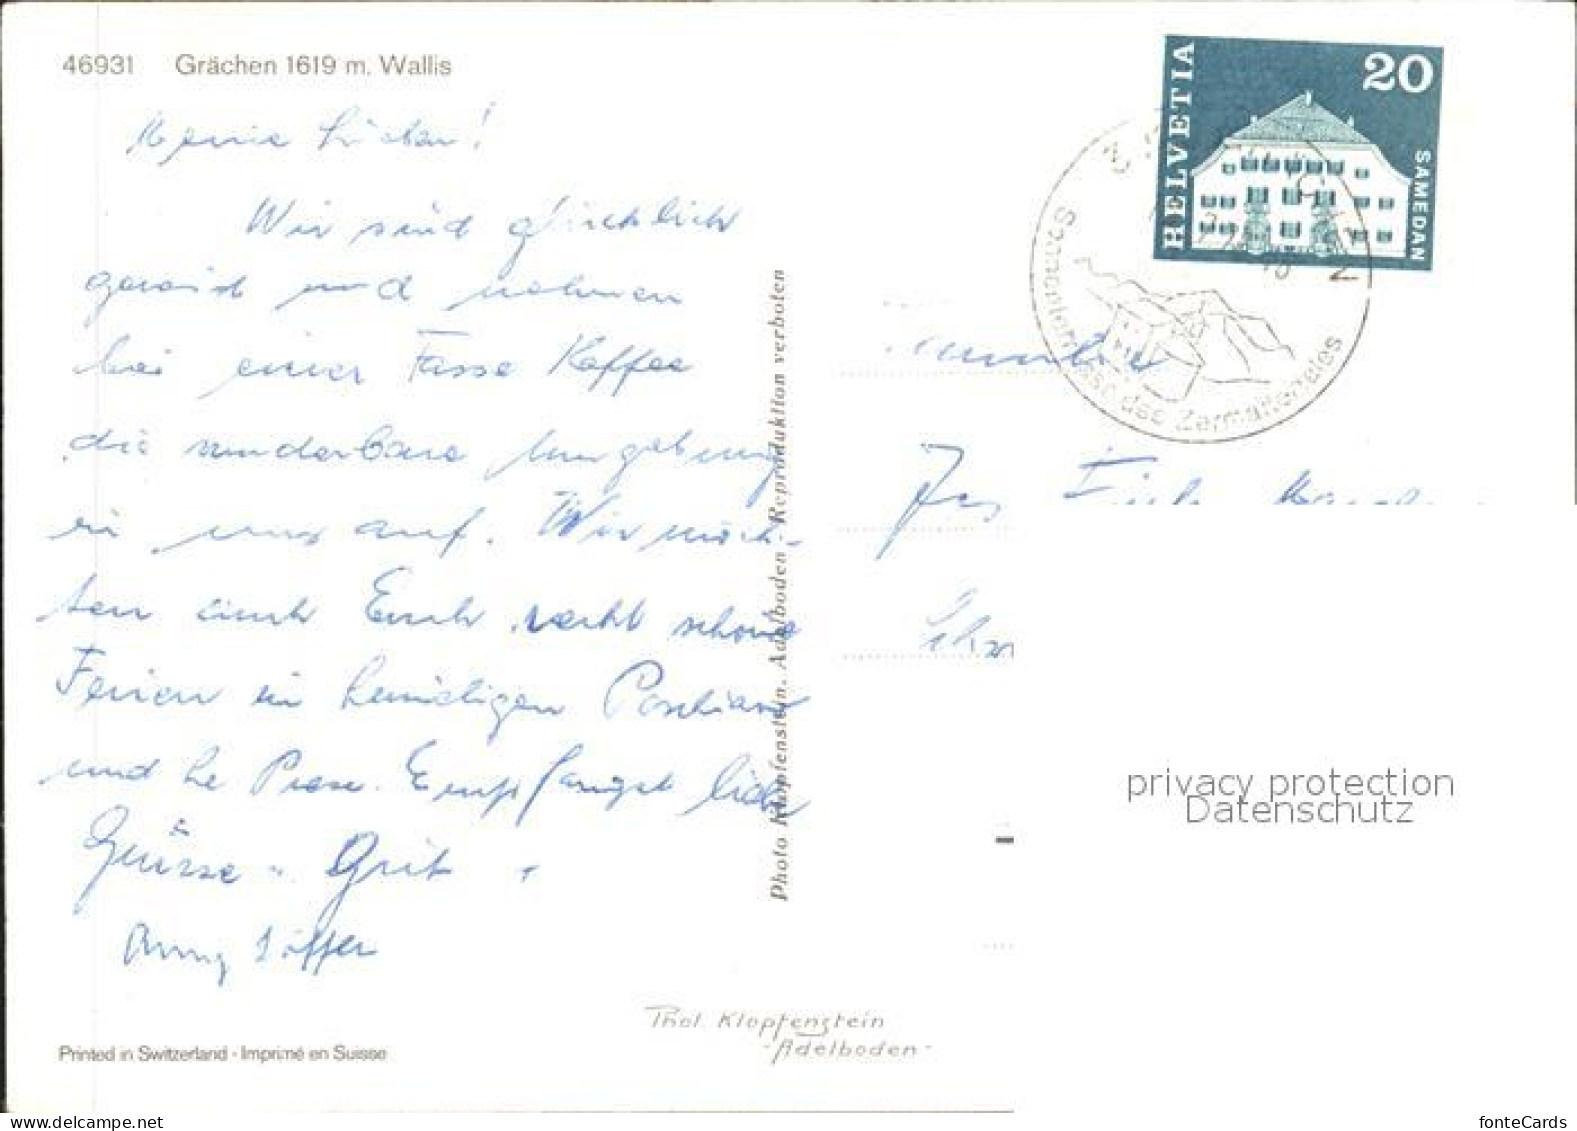 46931 Grächen 1619 m. Wallis
Meine Lieben!
Wir sind glücklich
gereist und nehmen
bei einer Tasse Kaffee
die wunderbare Umgebung
in uns auf. Wir möch-
ten auch Euch recht schöne
Ferien im
und Le Prese. Empfanget liebe
Grüsse
Anny
Printed in Switzerland - Imprimé en Suisse
Phot. Klopfenstein
-Adelboden-
Photo Klopfenstein, Adelboden Reproduktion verboten
HELVETIA
20
SAMEDAN
Sonnenterrasse des Zermattertales
privacy protection
Datenschutz
www.delcampe.net
fonteCards